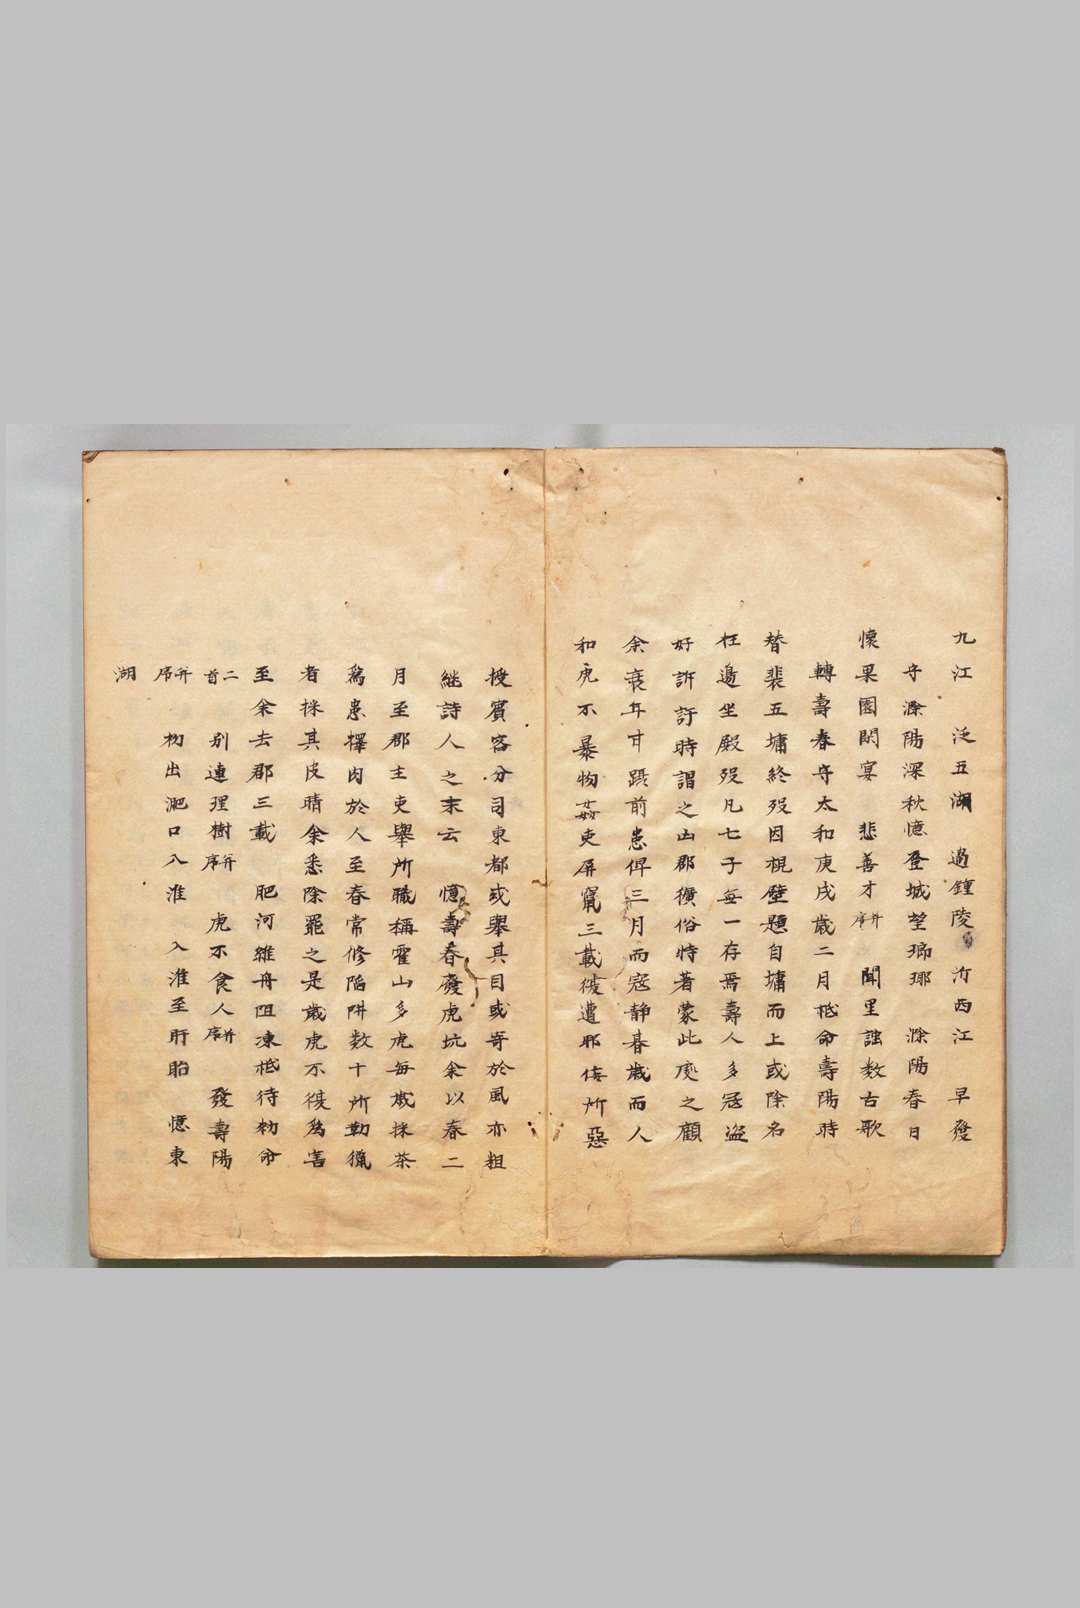 九江 泛五湖 過鍾陵 沂西江 早發
守滁陽深秋憶登城望瑯琊 滁陽春日
懷果園閑宴 悲善才并序 聞里謠效古歌
轉壽春守太和庚戌歲二月祗命壽陽時
替裴五墉終歿因視壁題自墉而上或除名
在邊坐殿歿凡七子每一存焉壽人多寇盜
好訴訐時謂之凶郡獷俗特著蒙此處之顧
余衰年甘躡前患俾三月而寇靜朞歲而人
和虎不暴物姦吏屏竄三載後遭邪佞所惡
授賓客分司東都或舉其目或寄於風亦粗
繼詩人之末云 憶壽春廢虎坑余以春二
月至郡主吏舉所職稱霍山多虎每歲採茶
為患擇肉於人至春常修陷阱数十所勒獵
者採其皮睛余悉除罷之是歲虎不復為害
至余去郡三載 肥河維舟阻凍祗待敕命
二首 別連理樹并序 虎不食人并序 發壽陽
并序 初出淝口入淮 入淮至盱眙 憶東
湖